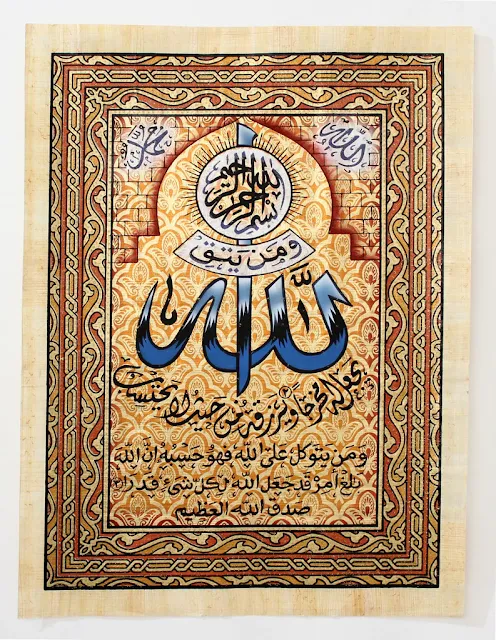 الله
محمد
بسم الله الرحمن الرحيم
ومن يتق
الله
يجعل له مخرجا ٢ ويرزقه من حيث لا يحتسب
ومن يتوكل على الله فهو حسبه إن الله
بلغ أمره قد جعل الله لكل شيء قدرا (٣)
صدق الله العظيم